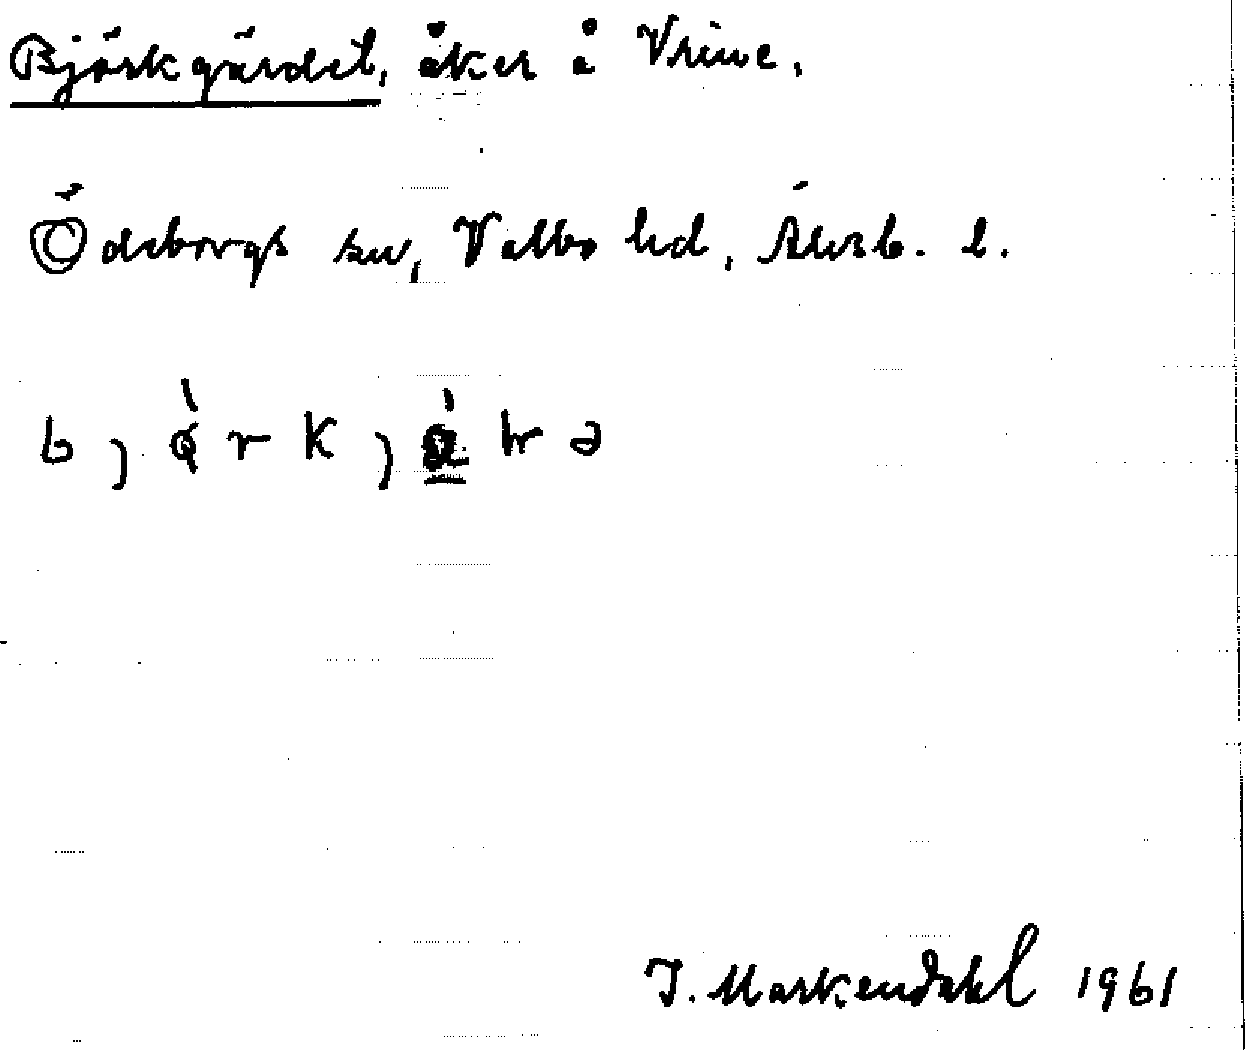 Björkgärdet, åker å Vrine.
Ödeborgs sn, Valbo hd, Älvsb. l.
J. Markendahl 1961